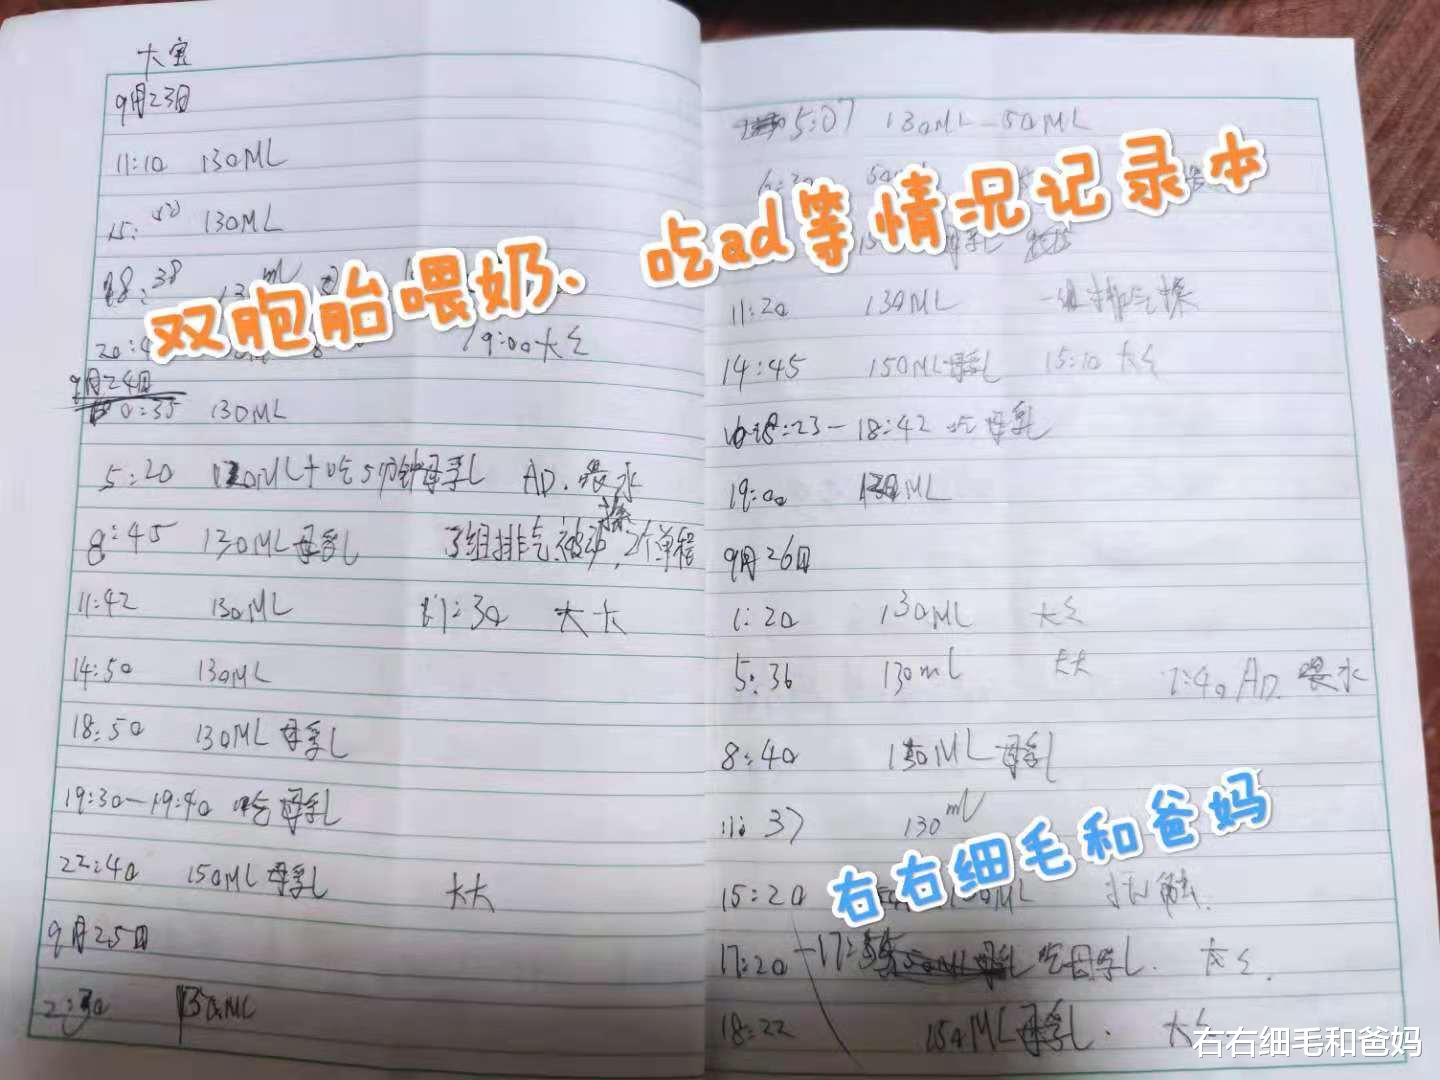 大宝
9月23日
11:10 130ML
15:50 130ML
18:38 13 ml
20:4 19:00大
9月24日
0:35 130ML
5:20 ML+吃5分钟母乳 AD.喂水
8:45 130ML母乳 3组排气操 被动,2个单程
11:42 130ML 11:30 大
14:50 130ML
18:50 130ML母乳
19:30-19:40 吃母乳
22:40 150ML母乳
9月25日
2:30 130ML
5:07 130ML-50ML
6:20
双胞胎喂奶、吃ad等情况记录本
11:20 130ML 一组排气操
14:45 150ML母乳 15:10 大
:23-18:42 吃母乳
19:00 130ML
9月26日
1:20 130ML 大
5:36 130ml 7:40 AD.喂水
8:40 ML母乳
11:37 130ml
右右细毛和爸妈
15:20 ML 抚触.
17:20-17: 吃母乳. 大
18:22 150ML母乳. 大
右右细毛和爸妈